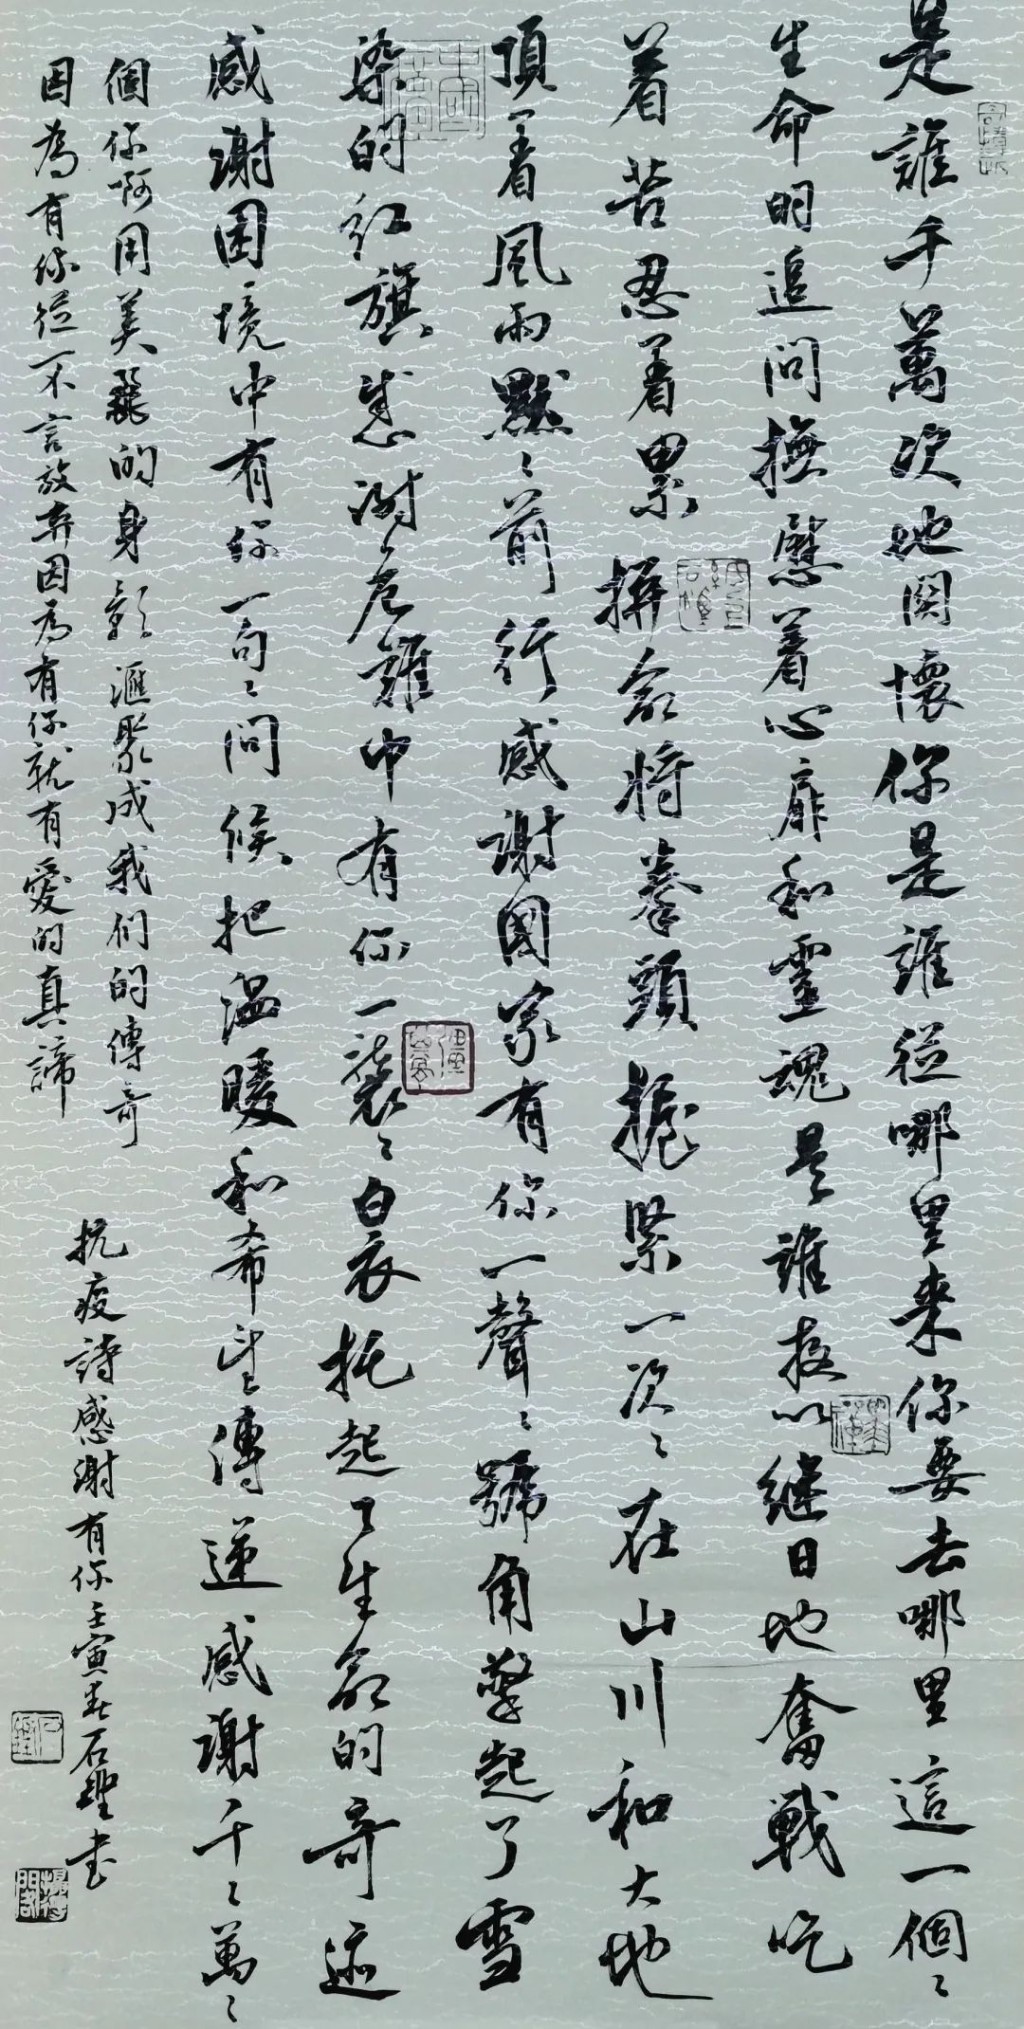 是誰千萬次地関懷你是誰從哪里来你要去哪里這一個〻
生命的追問撫慰着心扉和靈魂是誰夜以继日地奮戰吃
着苦忍着累拼命将拳頭握紧一次〻在山川和大地
頂着風雨默〻前行感謝國家有你一聲〻號角擎起了雪
染的红旗感谢危難中有你一袭〻白衣托起了生命的奇迹
感謝困境中有你一句〻问候把温暖和希望傳遞感謝千〻萬〻
個你啊用美麗的身影滙聚成我们的傳奇
因為有你從不言放弃因為有你就有愛的真諦
抗疫詩感謝有你壬寅春石聖书